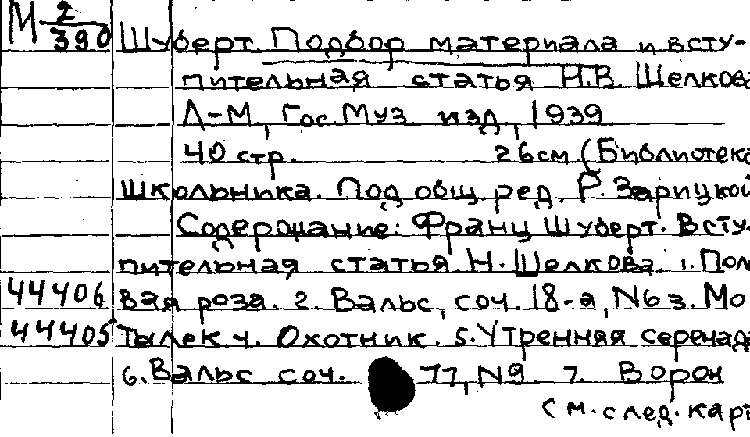 М 2/390
Шуберт. Подбор материала и всту-
пительная статья Н.В. Шелкова
Л-М, Гос. Муз изд, 1939
40 стр. 26см (Библиотека
школьника. Под общ. ред. Р. Зарицкой
Содержание: Франц Шуберт. Всту-
пительная статья Н. Шелкова. 1. Поле
44406 вая роза. 2. Вальс, соч. 18-а, N6 3. Мо
44405 тылек 4. Охотник. 5. Утренняя серенада
6. Вальс соч. 77, N9. 7. Ворон
См. след. карт